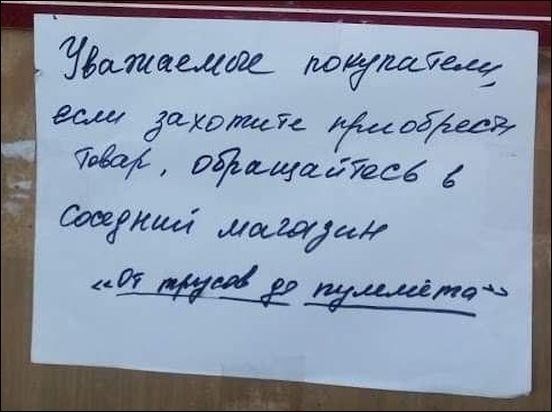 Уважаемые покупатели,
если захотите приобрести
товар, обращайтесь в
соседний магазин
«От трусов до пулемёта»